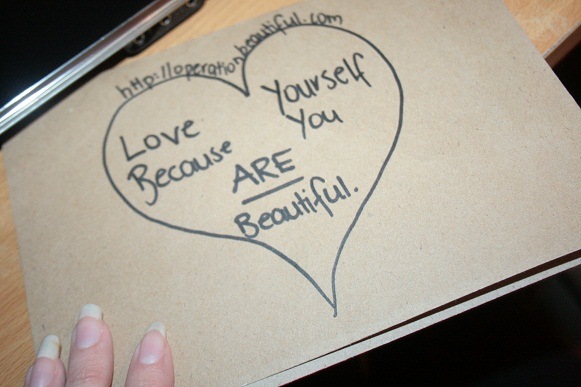 http://operationbeautiful.com
Love Yourself
Because You
ARE
Beautiful.